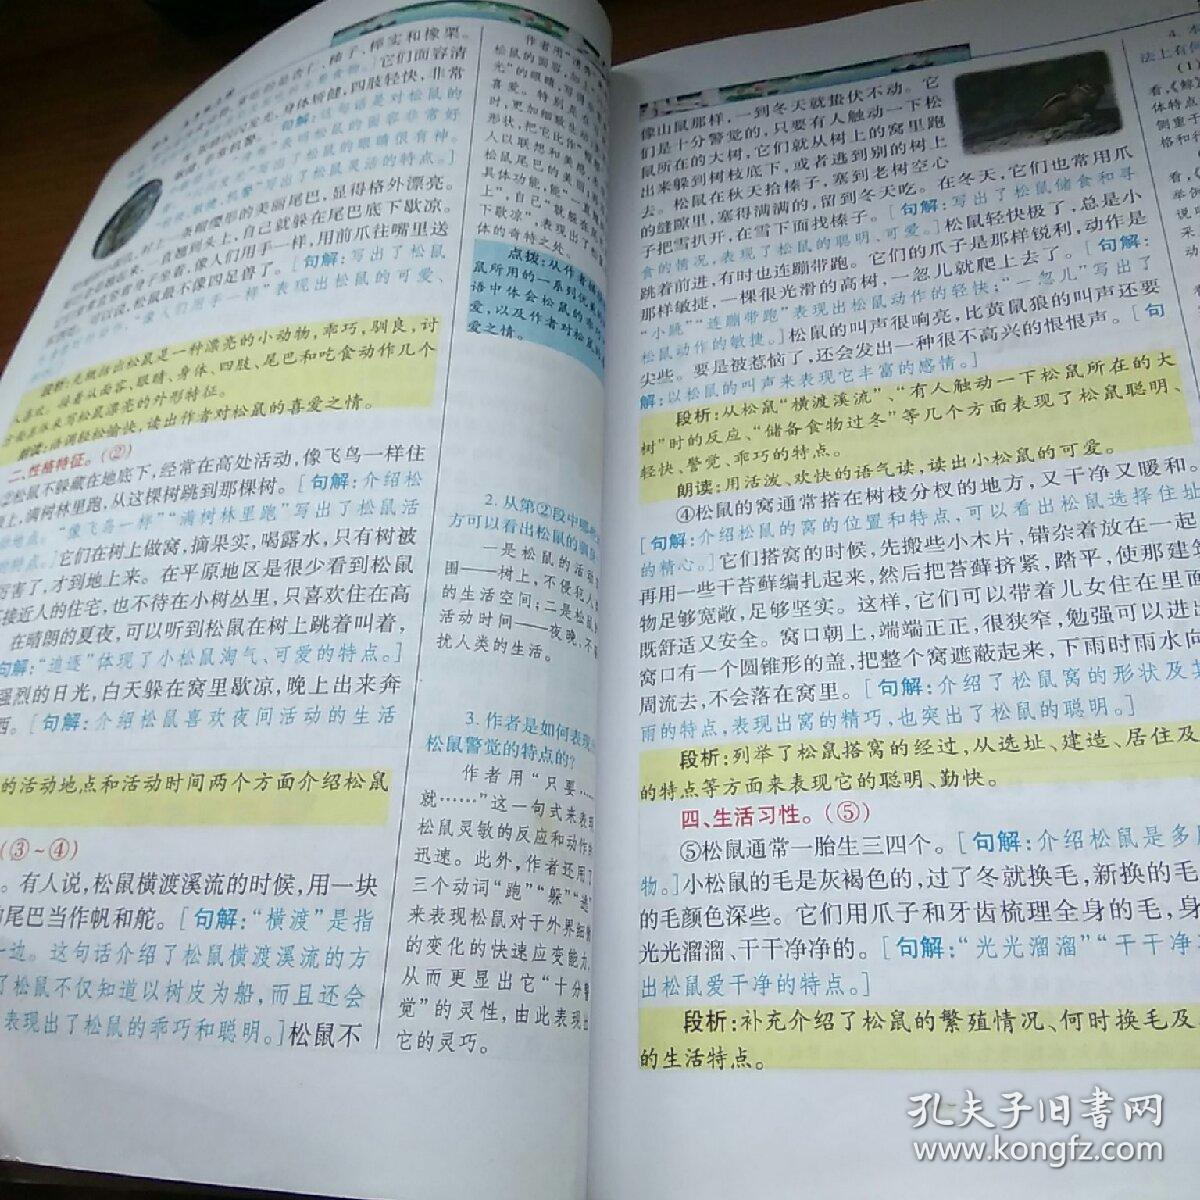 榛子、榧实和橡栗。
它们面容清
四肢轻快，非常
句解：这句话是对松鼠的
表明松鼠的面容非常好
写出了松鼠的眼睛很有神。
写出了松鼠灵活的特点。］
的美丽尾巴，显得格外漂亮。
一直翘到头上，自己就躲在尾巴底下歇凉。
身子坐着，像人们用手一样，用前爪往嘴里送
可以说，松鼠最不像四足兽了。［句解：写出了松鼠
“像人们用手一样”表现出松鼠的可爱、
松鼠是一种漂亮的小动物，乖巧，驯良，讨
接着从面容、眼睛、身体、四肢、尾巴和吃食动作几个
写松鼠漂亮的外形特征。
朗读：语调轻松愉快，读出作者对松鼠的喜爱之情。
二、性格特征。（②）
②松鼠不躲藏在地底下，经常在高处活动，像飞鸟一样住
满树林里跑，从这棵树跳到那棵树。［句解：介绍松
“像飞鸟一样”“满树林里跑”写出了松鼠活
特点。］它们在树上做窝，摘果实，喝露水，只有树被
厉害了，才到地上来。在平原地区是很少看到松鼠
接近人的住宅，也不待在小树丛里，只喜欢住在高
在晴朗的夏夜，可以听到松鼠在树上跳着叫着，
句解：“追逐”体现了小松鼠淘气、可爱的特点。］
强烈的日光，白天躲在窝里歇凉，晚上出来奔
西。［句解：介绍松鼠喜欢夜间活动的生活
的活动地点和活动时间两个方面介绍松鼠
（③～④）
。有人说，松鼠横渡溪流的时候，用一块
的尾巴当作帆和舵。［句解：“横渡”是指
一边。这句话介绍了松鼠横渡溪流的方
了松鼠不仅知道以树皮为船，而且还会
表现出了松鼠的乖巧和聪明。］松鼠不
点拨：从作者
鼠所用的一系列
语中体会松鼠的
爱，以及作者对松鼠
爱之情。
2. 从第②段中哪
方可以看出松鼠的驯
一是松鼠的活动
围——树上，不侵犯人
的生活空间；二是松鼠
活动时间——夜晚，不
扰人类的生活。
3. 作者是如何表现
松鼠警觉的特点的？
作者用“只要……
就……”这一句式来表现
松鼠灵敏的反应和动作的
迅速。此外，作者还用了
三个动词“跑”“躲”“逃”
来表现松鼠对于外界细微
的变化的快速应变能力，
从而更显出它“十分警
觉”的灵性，由此表现出
它的灵巧。
像山鼠那样，一到冬天就蛰伏不动。它
们是十分警觉的，只要有人触动一下松
鼠所在的大树，它们就从树上的窝里跑
出来躲到树枝底下，或者逃到别的树上
去。松鼠在秋天拾榛子，塞到老树空心
的缝隙里，塞得满满的，留到冬天吃。在冬天，它们也常用爪
子把雪扒开，在雪下面找榛子。［句解：写出了松鼠储食和寻
食的情况，表现了松鼠的聪明、可爱。］松鼠轻快极了，总是小
跳着前进，有时也连蹦带跑。它们的爪子是那样锐利，动作是
那样敏捷，一棵很光滑的高树，一忽儿就爬上去了。［句解：
“小跳”“连蹦带跑”表现出松鼠动作的轻快；“一忽儿”写出了
松鼠动作的敏捷。］松鼠的叫声很响亮，比黄鼠狼的叫声还要
尖些。要是被惹恼了，还会发出一种很不高兴的恨恨声。［句
解：以松鼠的叫声来表现它丰富的感情。］
段析：从松鼠“横渡溪流”、“有人触动一下松鼠所在的大
树”时的反应、“储备食物过冬”等几个方面表现了松鼠聪明、
轻快、警觉、乖巧的特点。
朗读：用活泼、欢快的语气读，读出小松鼠的可爱。
④松鼠的窝通常搭在树枝分杈的地方，又干净又暖和。
［句解：介绍松鼠的窝的位置和特点，可以看出松鼠选择住址
的精心。］它们搭窝的时候，先搬些小木片，错杂着放在一起，
再用一些干苔藓编扎起来，然后把苔藓挤紧，踏平，使那建筑
物足够宽敞，足够坚实。这样，它们可以带着儿女住在里面，
既舒适又安全。窝口朝上，端端正正，很狭窄，勉强可以进出
窝口有一个圆锥形的盖，把整个窝遮蔽起来，下雨时雨水向
周流去，不会落在窝里。［句解：介绍了松鼠窝的形状及其
雨的特点，表现出窝的精巧，也突出了松鼠的聪明。］
段析：列举了松鼠搭窝的经过，从选址、建造、居住及
的特点等方面来表现它的聪明、勤快。
四、生活习性。（⑤）
⑤松鼠通常一胎生三四个。［句解：介绍松鼠是多
物。］小松鼠的毛是灰褐色的，过了冬就换毛，新换的毛
的毛颜色深些。它们用爪子和牙齿梳理全身的毛，身
光光溜溜、干干净净的。［句解：“光光溜溜”“干干净
出松鼠爱干净的特点。］
段析：补充介绍了松鼠的繁殖情况、何时换毛及
的生活特点。
孔夫子旧书网
www.kongfz.com